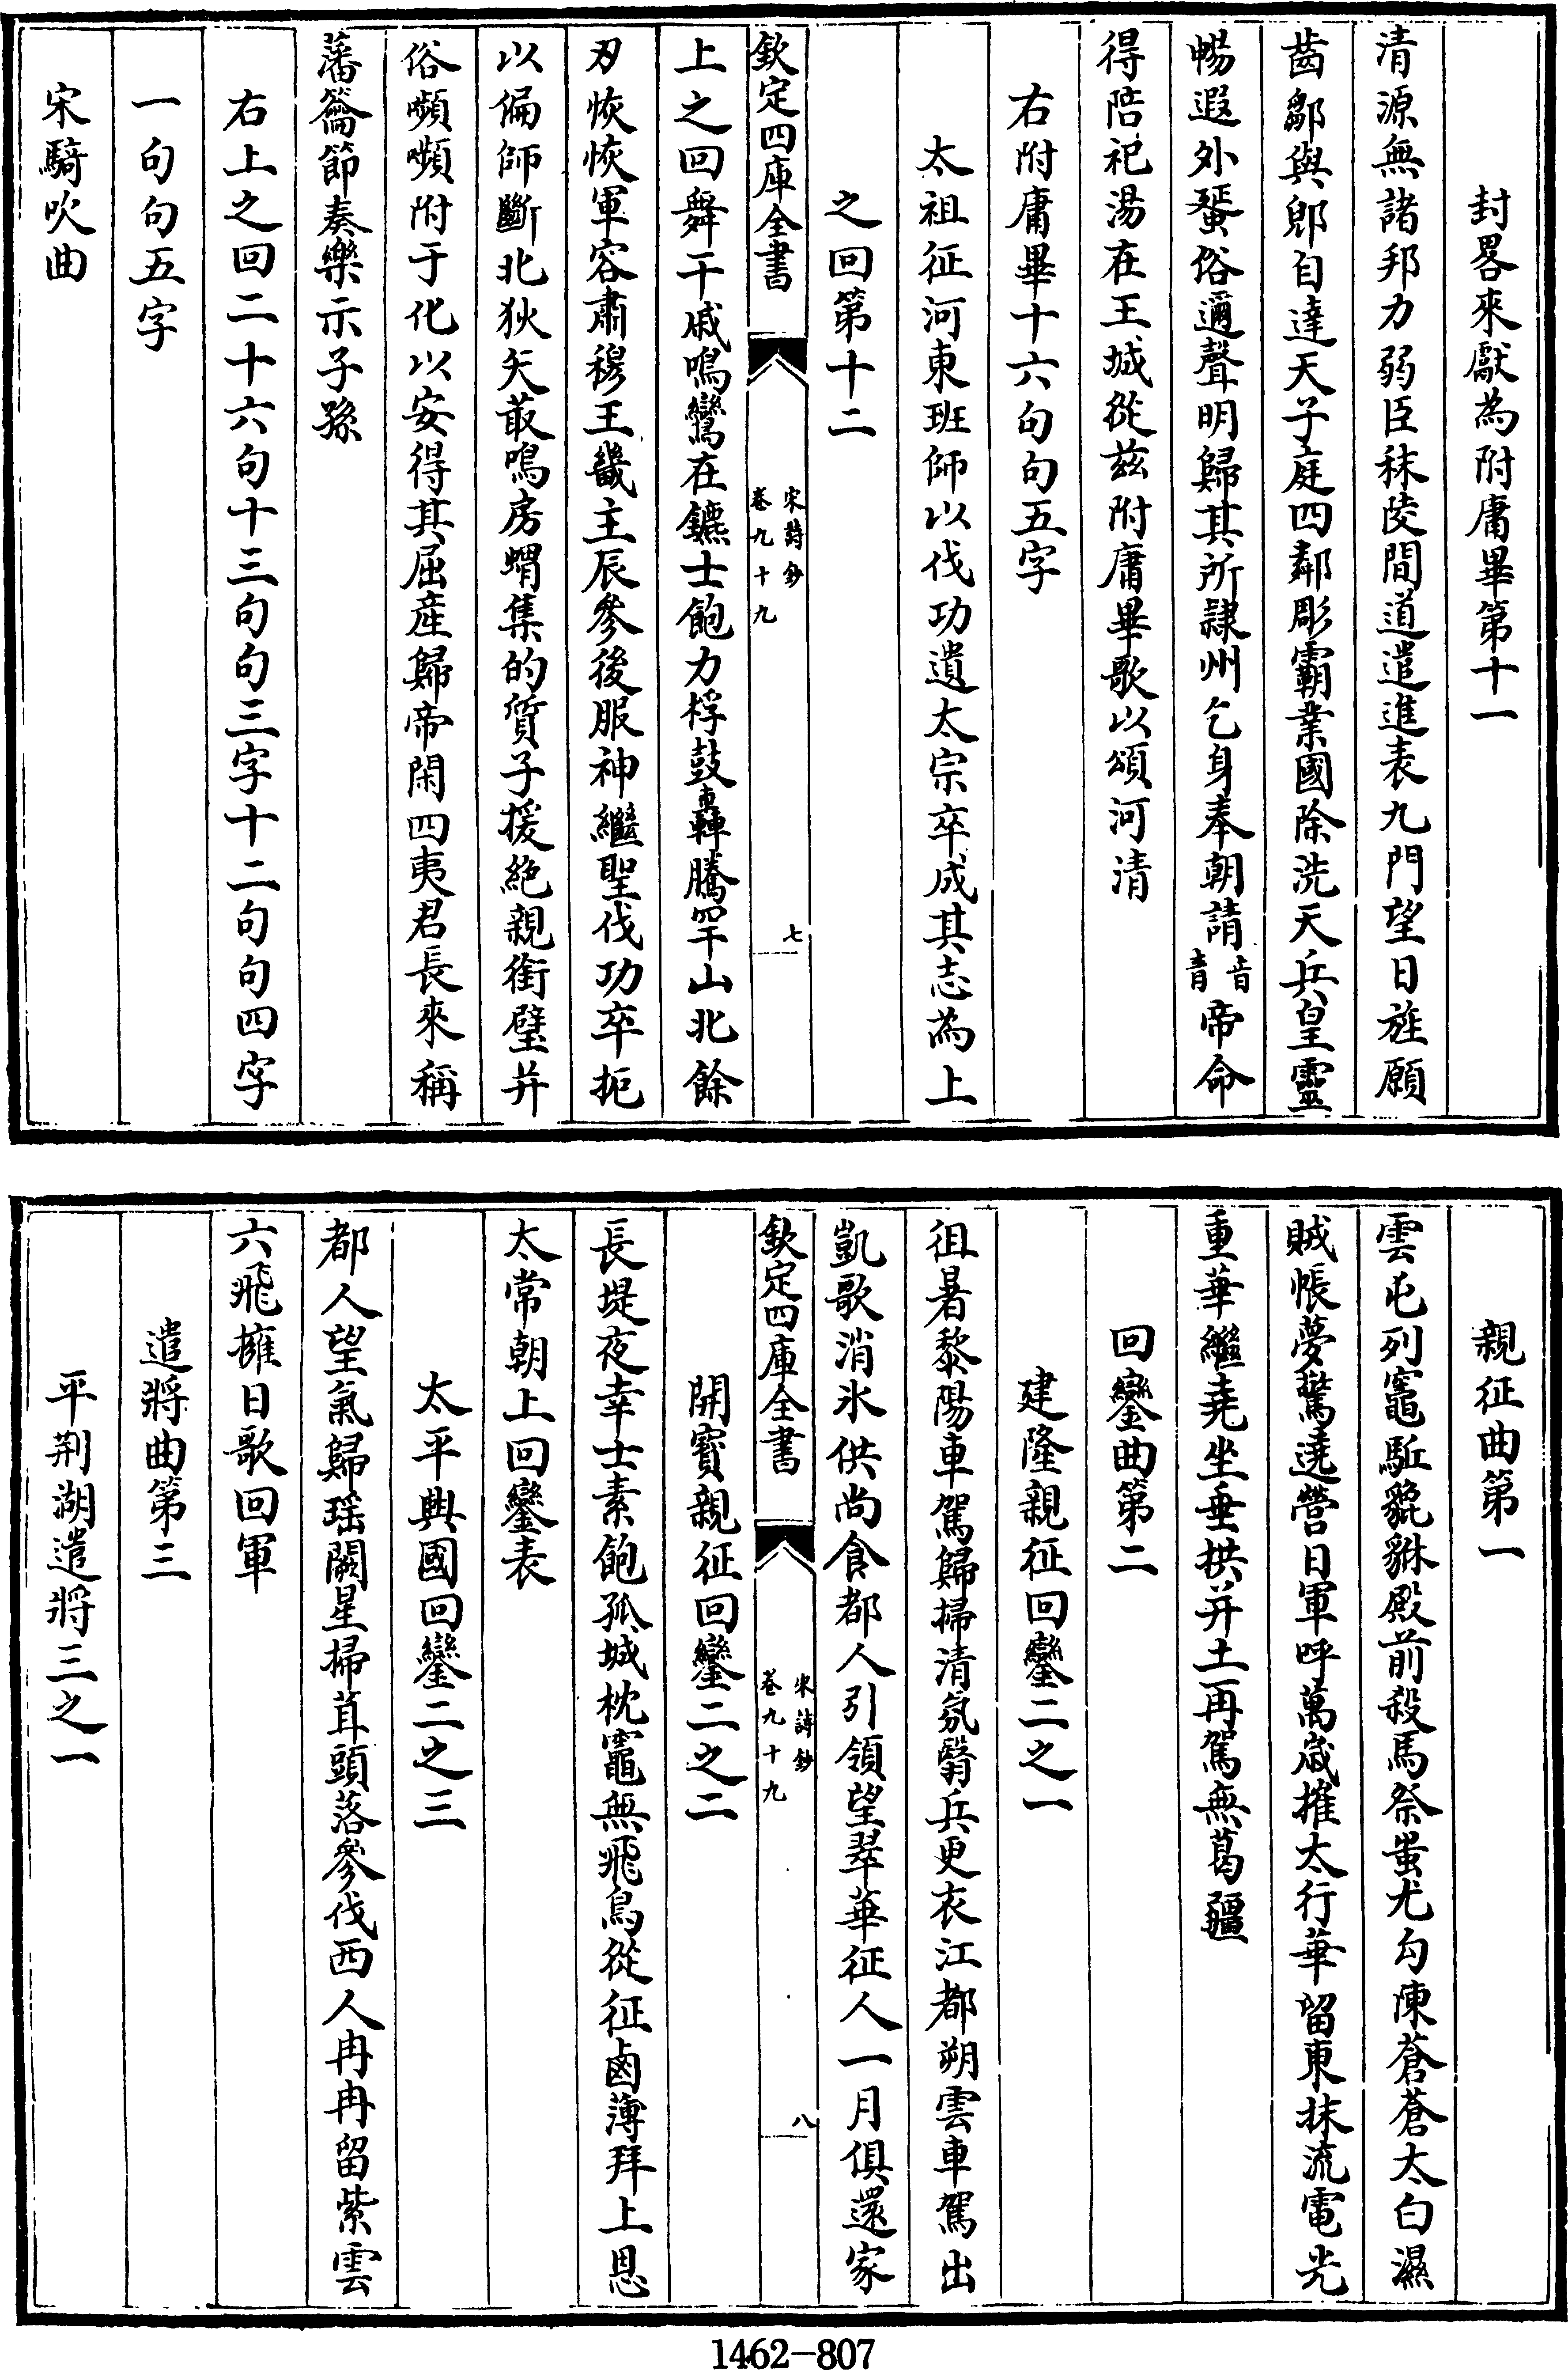 封畧來獻為附庸畢第十一
清源無諸邦力弱臣秣陵間道遣進表九門望日旌願
齒鄒與郳自達天子庭四鄰彫霸業國除洗天兵皇靈
暢遐外蜑俗邇聲明歸其所隸州乞身奉朝請音青帝命
得陪祀湯在王城從兹附庸畢歌以頌河清
右附庸畢十六句句五字
太祖征河東班師以伐功遺太宗卒成其志為上
之回第十二
欽定四庫全書
宋詩鈔
卷九十九
七
上之回舞干戚鳴鸞在鑣士飽力桴鼓轟騰罕山北餘
刃恢恢軍容肅穆王畿主辰參後服神繼聖伐功卒扼
以偏師斷北狄矢菆鳴房蝟集的質子援絶親銜璧并
俗嚬嚬附于化以安得其屈産歸帝閑四夷君長來稱
藩籥節奏樂示子孫
右上之回二十六句十三句句三字十二句句四字
一句句五字
宋騎吹曲
親征曲第一
雲屯列竈駈貔貅殿前殺馬祭蚩尤勾陳蒼蒼太白濕
賊帳夢驚遶營日軍呼萬歲摧太行華留東抹流電光
重華繼堯坐垂拱并土再駕無葛疆
回鑾曲第二
建隆親征回鑾二之一
徂暑黎陽車駕歸掃清氛翳兵更衣江都朔雲車駕出
凱歌消氷供尚食都人引領望翠華征人一月俱還家
欽定四庫全書
宋詩鈔
卷九十九
八
開寳親征回鑾二之二
長堤夜幸士素飽孤城枕竈無飛鳥從征鹵薄拜上恩
太常朝上回鑾表
太平興國回鑾二之三
都人望氣歸瑶闕星掃茸頭落參伐西人冉冉留紫雲
六飛擁日歌回軍
遣將曲第三
平荆湖遣將三之一
1462-807